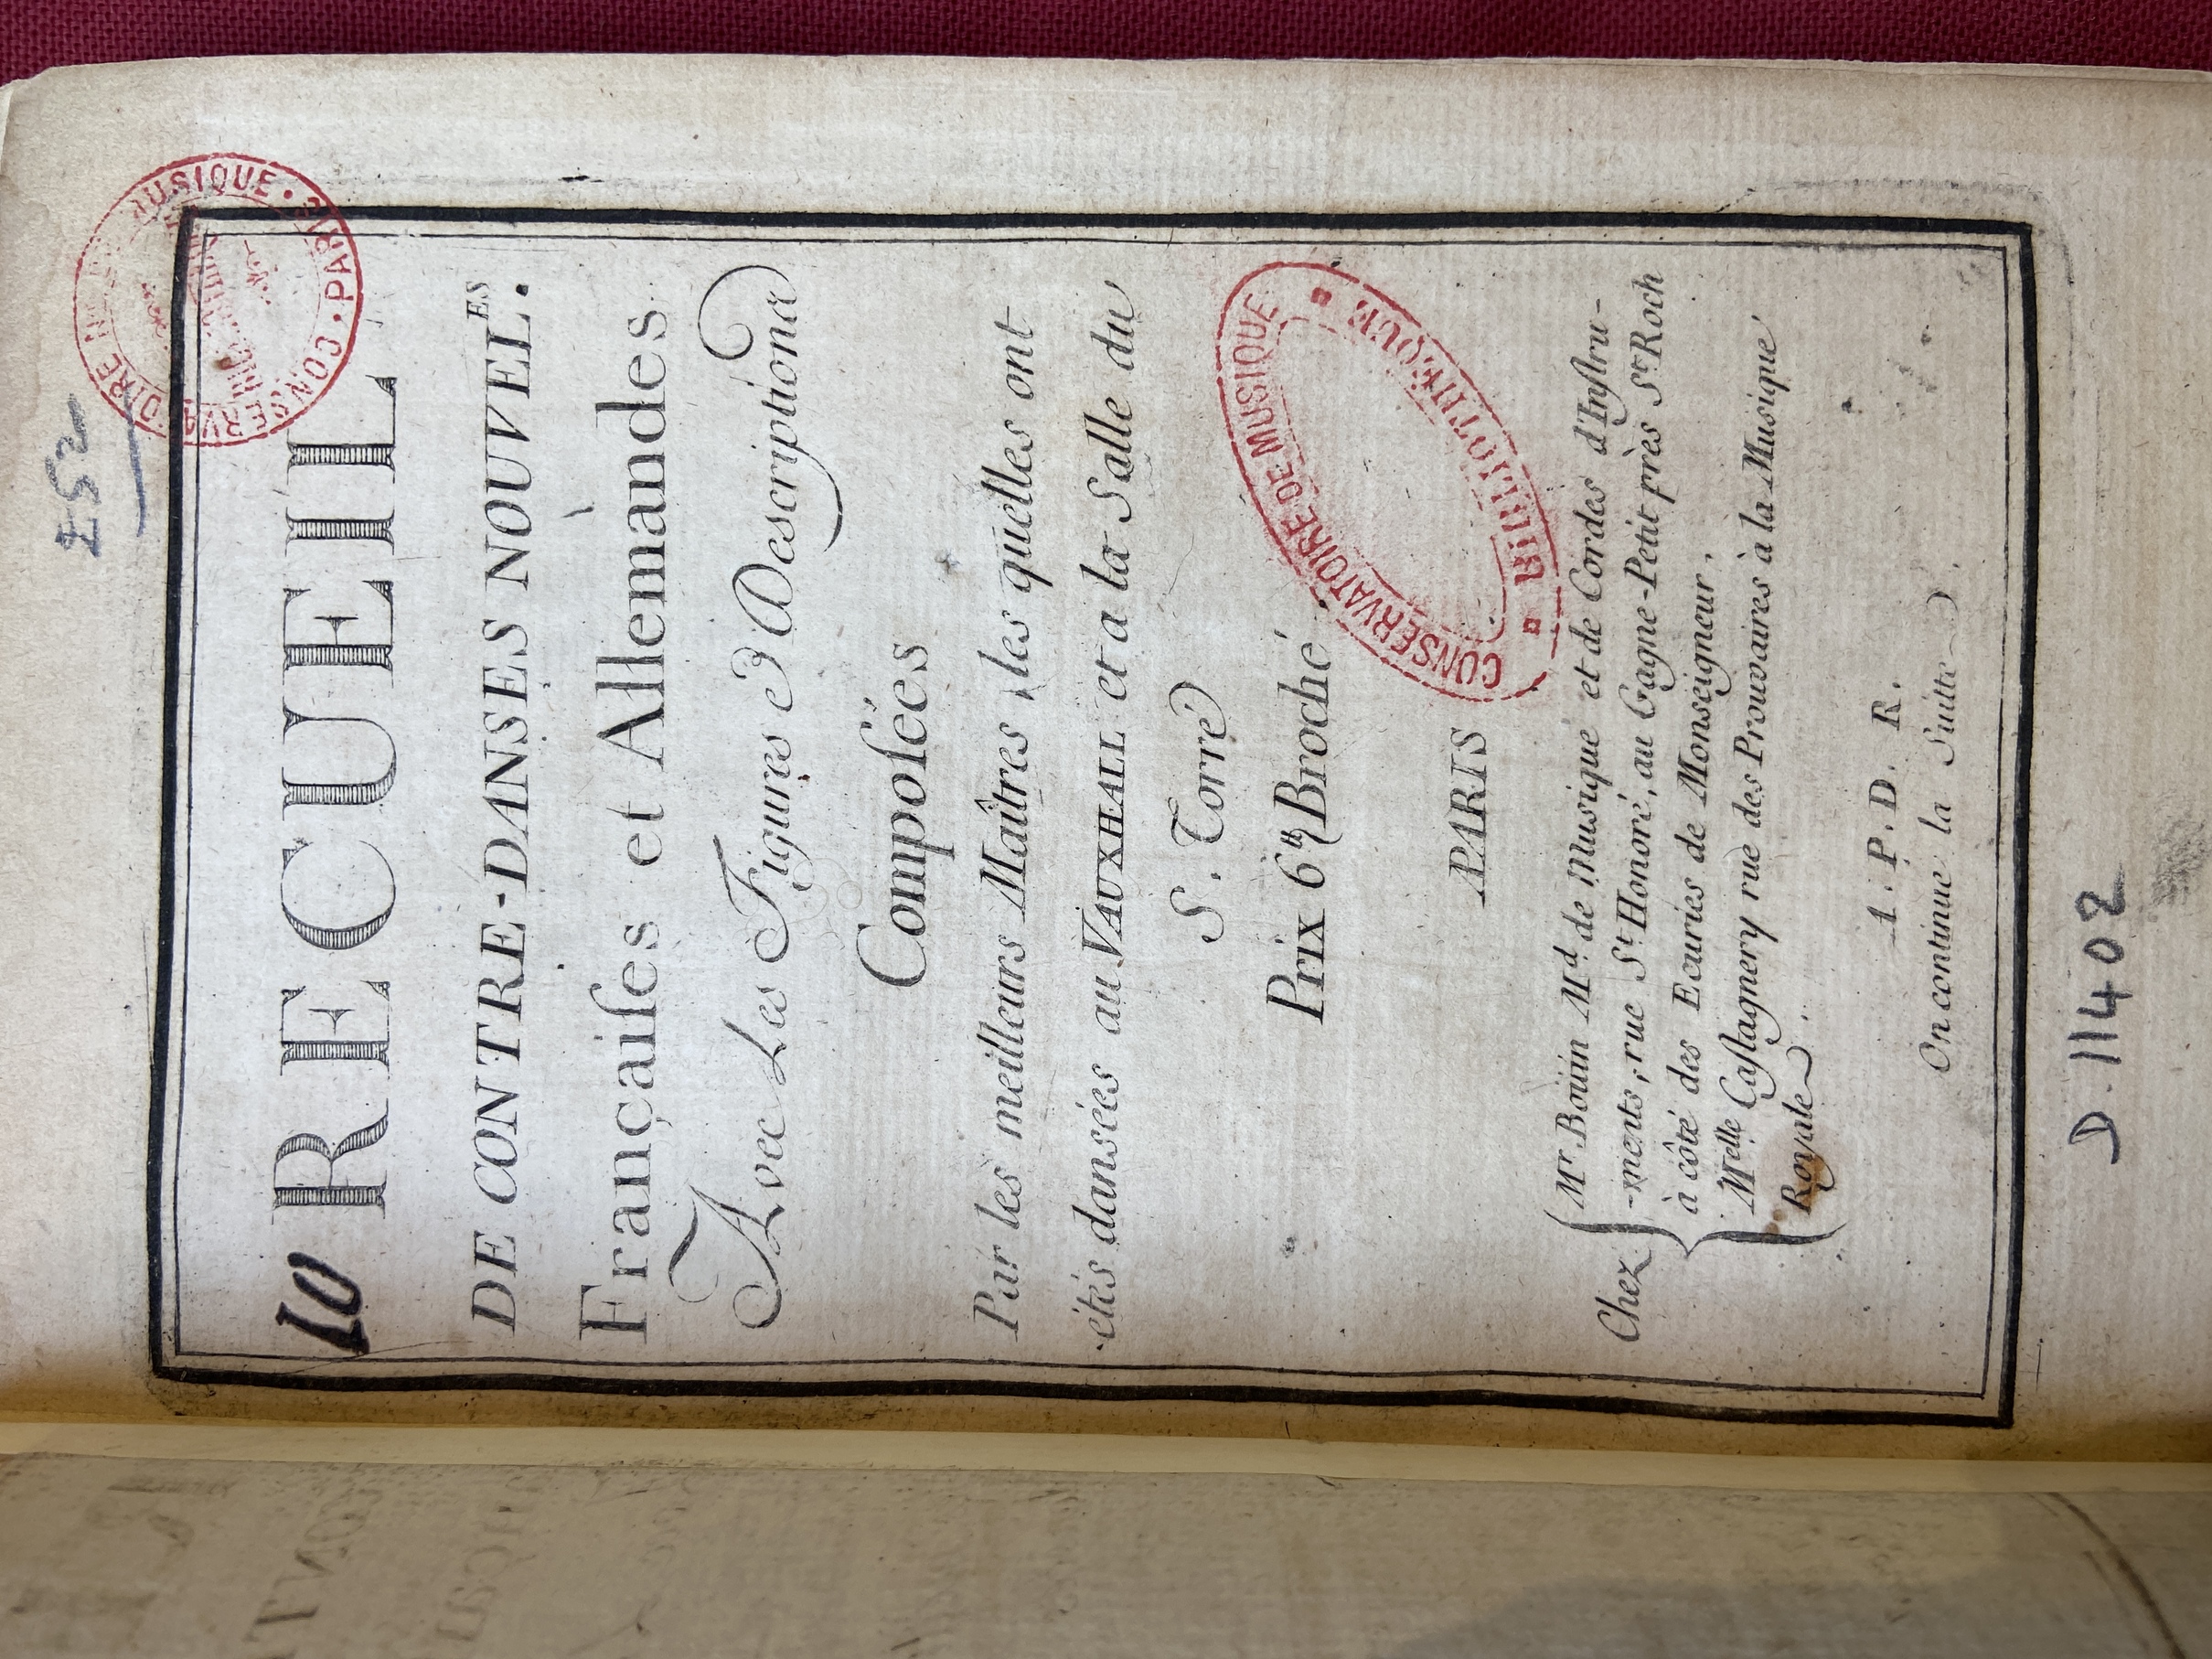 252
10 RECUEIL
DE CONTRE-DANSES NOUVEL.ES
Françaiſes et Allemandes
Avec Les Figures & Descriptions
Compoſées
Par les meilleurs Maîtres les quelles ont
étés dansées au VAUXHALL et a la Salle du
S. Torré
Prix 6tt Broché
PARIS
Chez
Mr Boüin Md. de Musique et de Cordes d'Inſtru-
-ments, rue St. Honoré, au Gagne-Petit près St. Roch
à côté des Ecuries de Monseigneur.
Melle Caſtagnery rue des Prouvaires à la Musique
Royale.
A. P. D. R.
On continue la Suitte.
D. 11402
CONSERVATOIRE DE MUSIQUE
BIBLIOTHÈQUE
MUSIQUE · PARIS · CONSERVATOIRE